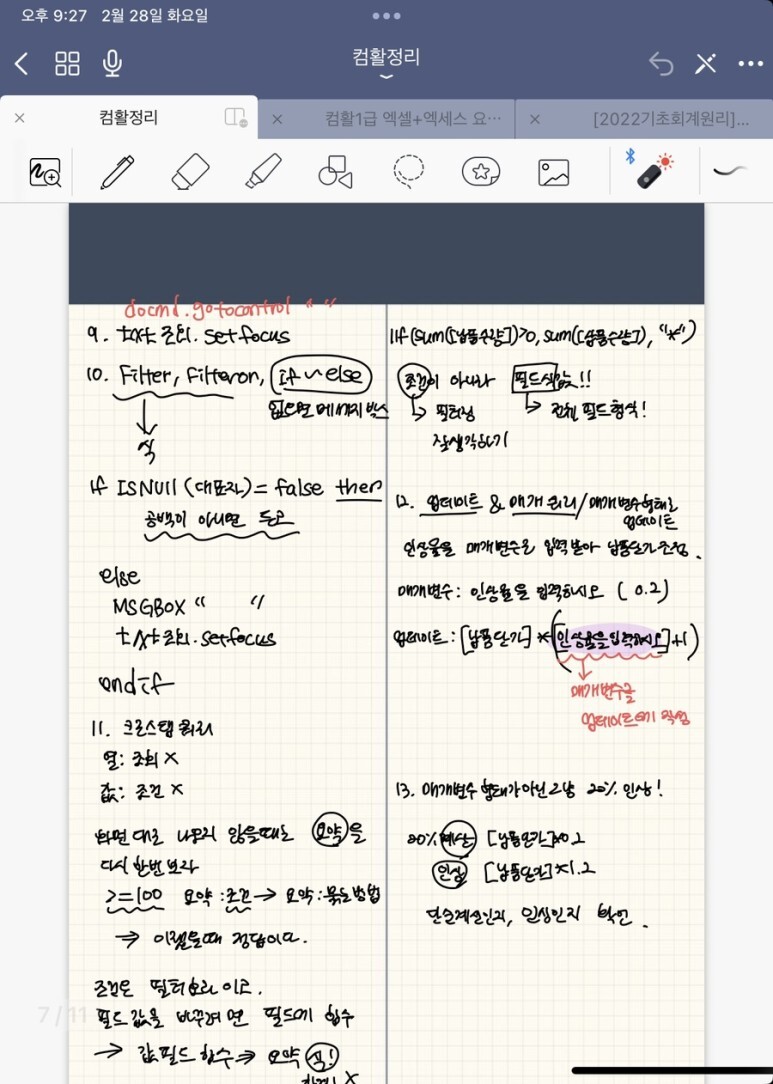 오후 9:27 2월 28일 화요일
컴활정리
컴활정리
컴활1급 엑셀+엑세스 요…
[2022기초회계원리]…
docmd.gotocontrol " "
9. txt조회.setfocus
10. Filter, Filteron, if ~ else
없으면 메세지 박스
식
if ISNull (대표자) = false then
공백이 아니면 등고
else
MSGBOX " "
txt조회.setfocus
endif
11. 크로스탭 쿼리
열: 조회 X
값: 조건 X
화면 대로 나오지 않을때는 요약을
다시 한번 보라
>=100 요약:조건 → 요약:묶는방법
⇒ 이랬을때 정답이다.
조건은 필터효과 이고.
필드 값을 바꾸려면 필드에 함수
→ 값 필드 함수 ⇒ 요약 식!
X
7 / 11
IIf(sum([납품수량])>0, sum([납품수량]), "*")
조건이 아니라 필드식값!!
↳ 필터링
↳ 전체 필드형식!
잘생각하기
12. 업데이트 & 매개 쿼리 / 매개변수형태로
업데이트
인상율을 매개변수로 입력받아 납품단가 조정.
매개변수: 인상율을 입력하시오 (0.2)
업데이트: [납품단가] * ([인상율을입력하시오]+1)
매개변수를
업데이트에 작성
13. 매개변수 형태가아닌 그냥 20% 인상!
20% 계산 [납품단가]*0.2
인상 [납품단가]*1.2
단순계산인지, 인상인지 확인.